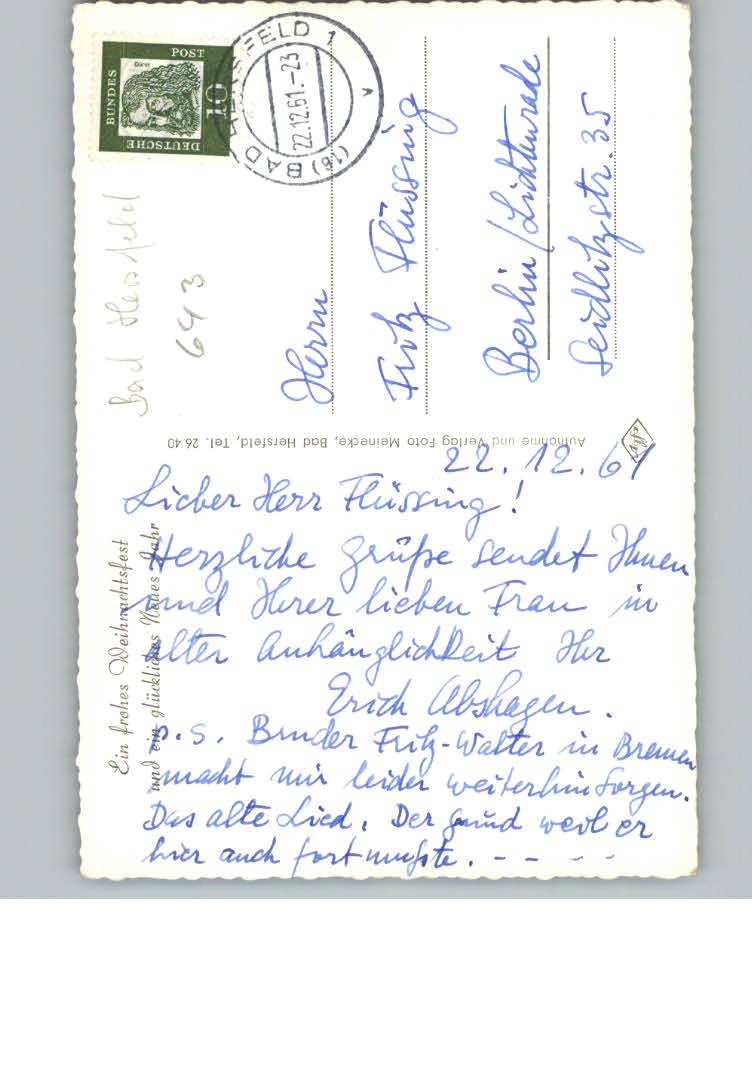 22.12.61
Lieber Herr Flüssing!
Herzliche Grüße sendet Ihnen
und Ihrer lieben Frau in
alter Anhänglichkeit Ihr
Erich Abshagen.
P.S. Bruder Fritz-Walter in Bremen
macht mir leider weiterhin Sorgen.
Das alte Lied. Der Grund weil er
hier auch fort mußte. - - - -
Ein frohes Weihnachtsfest
und ein glückliches Neues Jahr
Aufnahme und Verlag Foto Meinecke, Bad Hersfeld, Tel. 26 40
Agfa
DEUTSCHE
BUNDES
POST
Dürer
10
(16) BAD HERSFELD 1
22.12.61.-23
Bad Hersfeld
643
Herrn
Fritz Flüssing
Berlin/Lichtenrade
Seidlitzstr. 35